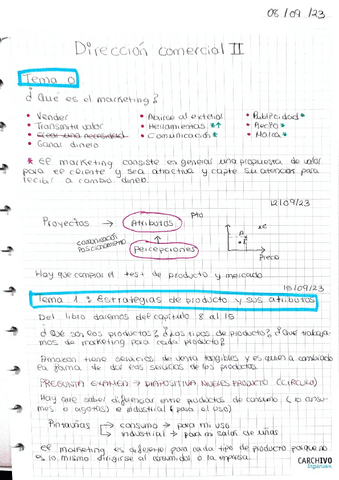 08/09/23
Dirección comercial II
Tema 0
¿Qué es el marketing?
• Vender • Abrirse al exterior • Publicidad*
• Transmitir valor • Herramientas * • Precio*
• Crear una necesidad • Comunicación* • Marca*
• Ganar dinero
* El marketing consiste en generar una propuesta de valor
para el cliente y sea atractiva y capte su atención para
recibir a cambio dinero.
12/09/23
Proyectos → Atributos Pto
comunicación
posicionamiento
Percepciones
Precio
Hay que comprar el test de producto y mercado
15/09/23
Tema 1: Estrategias de producto y sus atributos
Del libro daremos del capítulo 8 al 15
¿Qué son los productos? ¿Los tipos de producto? ¿Qué trabaja-
mos de marketing para cada producto?
Amazon tiene servicios de venta tangibles y es quien a cambiado
la forma de dar los servicios de los productos.
PREGUNTA EXAMEN → DIAPOSITIVA NUEVOS PRODUCTO (CÍRCULO)
Hay que saber diferenciar entre productos de consumo (lo consu-
mos o agotas) e industrial (para el uso)
Pintauñas → consumo → para mi uso
→ industrial → para mi salón de uñas
El marketing es diferente para cada tipo de producto porque no
es lo mismo dirigirse al consumidor o la empresa.
CARCHIVO